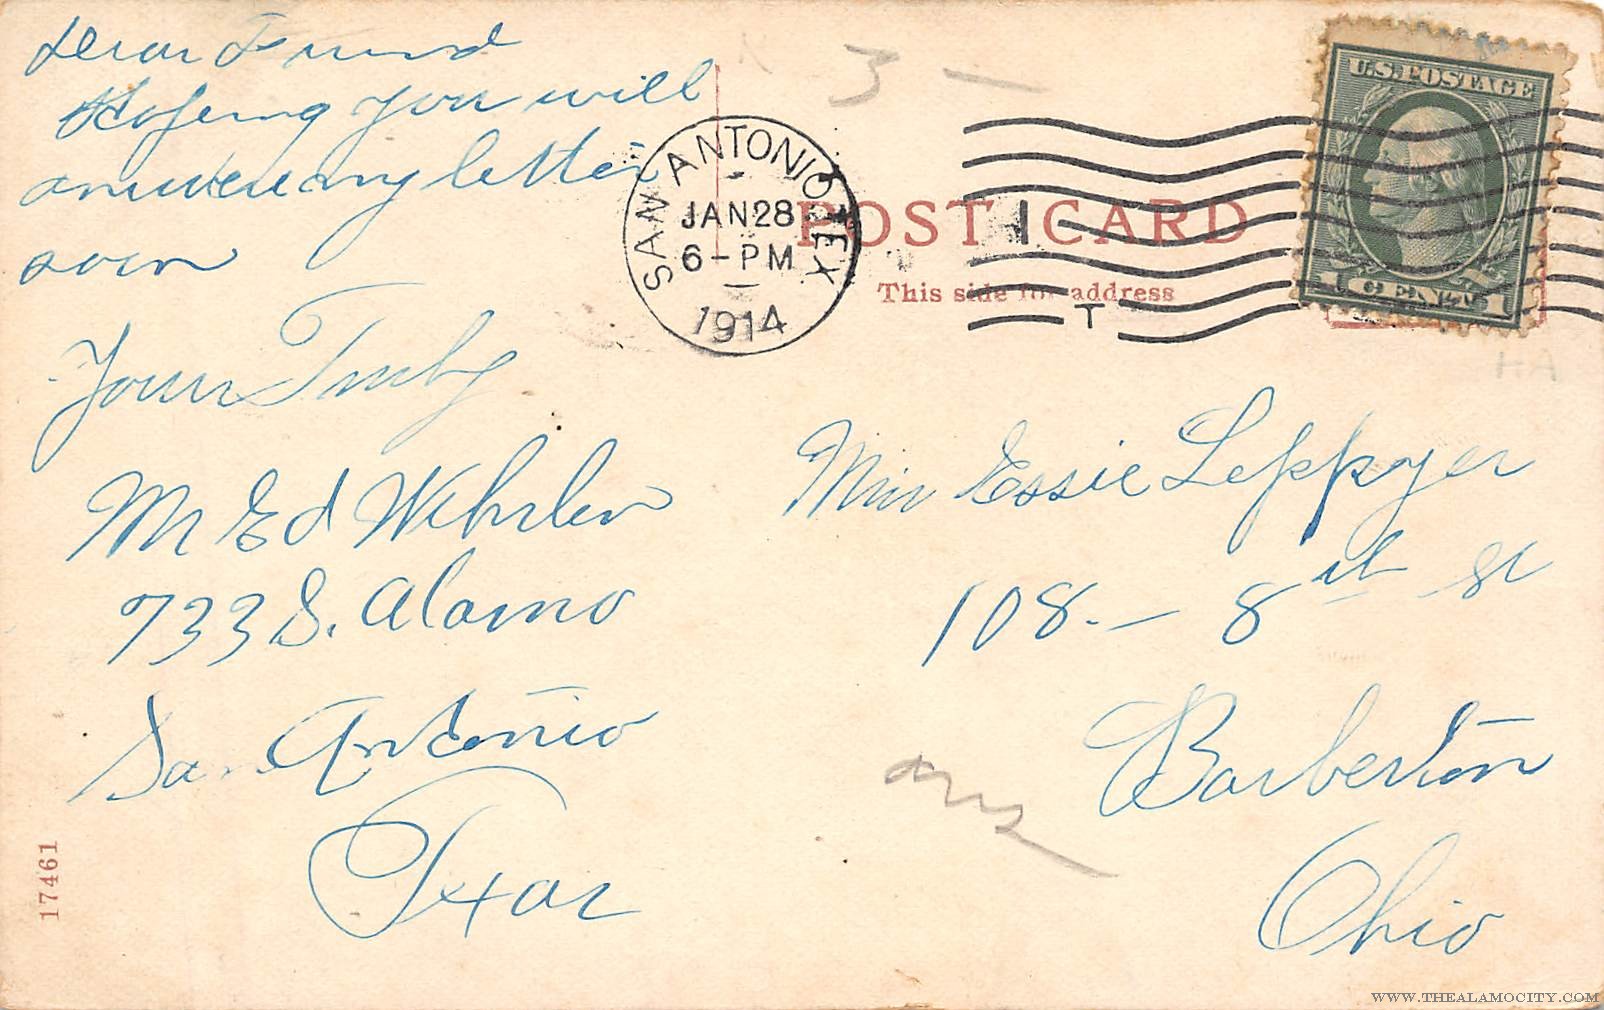 Dear Friend
Hopeing you will
answere my letter
soon
Yours Truly
Mr Ed Wehrlen
733 S. Alamo
San Antonio
Texas
17461
3 -
SAN ANTONIO TEX
JAN 28
6-PM
1914
T
U.S. POSTAGE
POST CARD
This side for address
Miss Essie Leppoyer
108.- 8th st
Barberton
Ohio
ans
WWW.THEALAMOCITY.COM